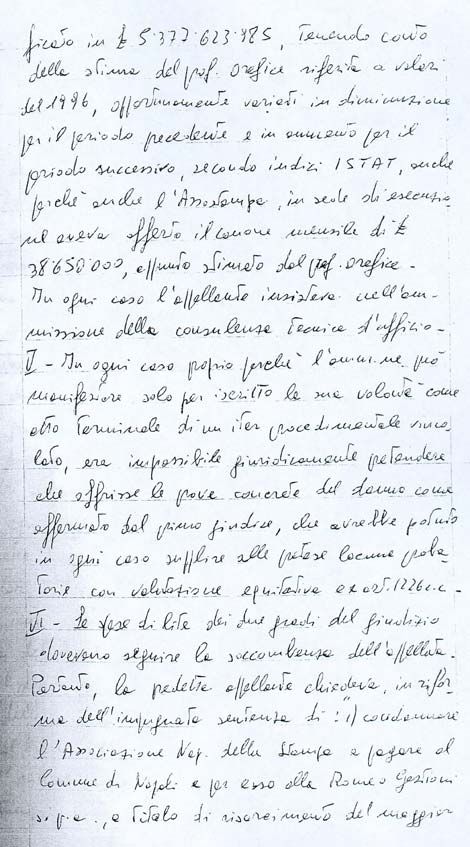 ficato in £ 5.377.623.985, tenendo conto
della stima del prof. Orefice riferita a valori
del 1996, opportunamente variati in diminuzione
per il periodo precedente e in aumento per il
periodo successivo, secondo indici ISTAT, anche
perché anche l'Assostampa, in sede di esecuzio
ne aveva offerto il canone mensile di £
38.650.000, appunto stimato dal prof. Orefice.
In ogni caso l'appellante insisteva nell'am-
missione della consulenza tecnica d'ufficio -
V - In ogni caso proprio perché l'amm.ne può
manifestare solo per iscritto la sua volontà come
atto terminale di un iter procedimentale vinco
lato, era impossibile giuridicamente pretendere
che offrisse le prove concrete del danno come
affermato dal primo giudice, che avrebbe potuto
in ogni caso supplire alle pretese lacune proba
torie con valutazione equitativa ex art. 1226 c.c. -
VI - Le spese di lite dei due gradi del giudizio
dovevano seguire la soccombenza dell'appellata.
Pertanto, la predetta appellante chiedeva, in rifor
ma dell'impugnata sentenza di: 1) condannare
l'Associazione Nap. della Stampa a pagare al
Comune di Napoli e per esso alla Romeo Gestioni
s.p.a., a titolo di risarcimento del maggior